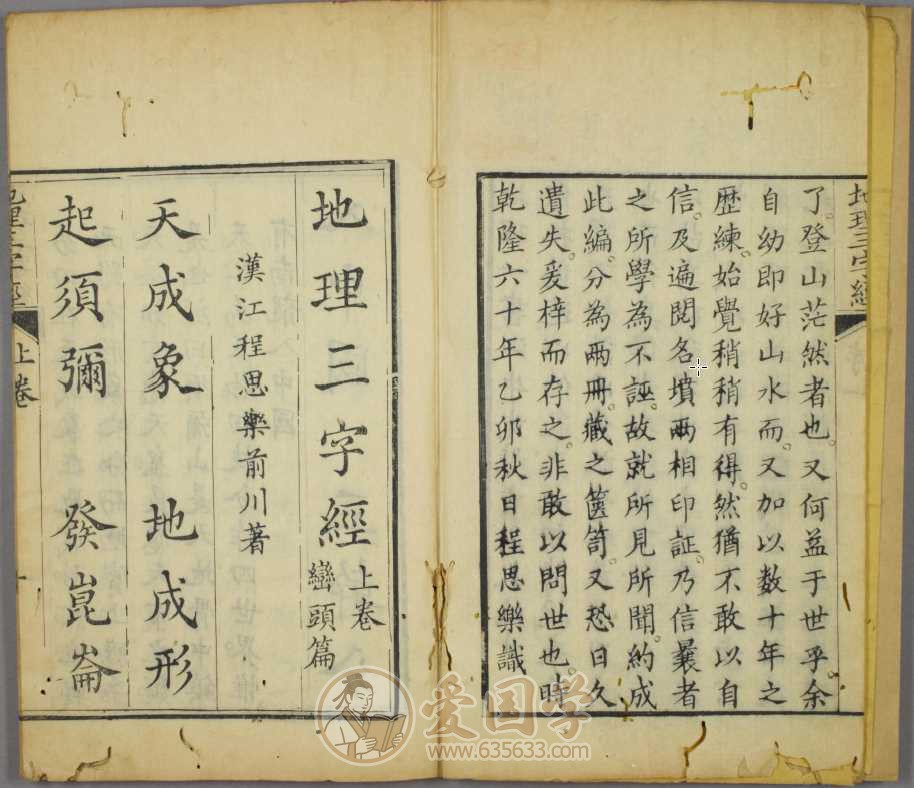 地理三字經
了登山茫然者也又何益于世乎余
自幼即好山水而又加以数十年之
歷練始覺稍稍有得然猶不敢以自
信及遍閱名墳兩相印証乃信曩者
之所學為不誣故就所見所聞約成
此編分為兩冊藏之篋笥又恐日久
遺失爰梓而存之非敢以問世也時
乾隆六十年乙卯秋日程思樂識
地理三字經 上卷 巒頭篇
漢江程思樂前川著
天成象 地成形
起須彌 發崑崙
地理三字經 上卷
爱国学
www.635633.com